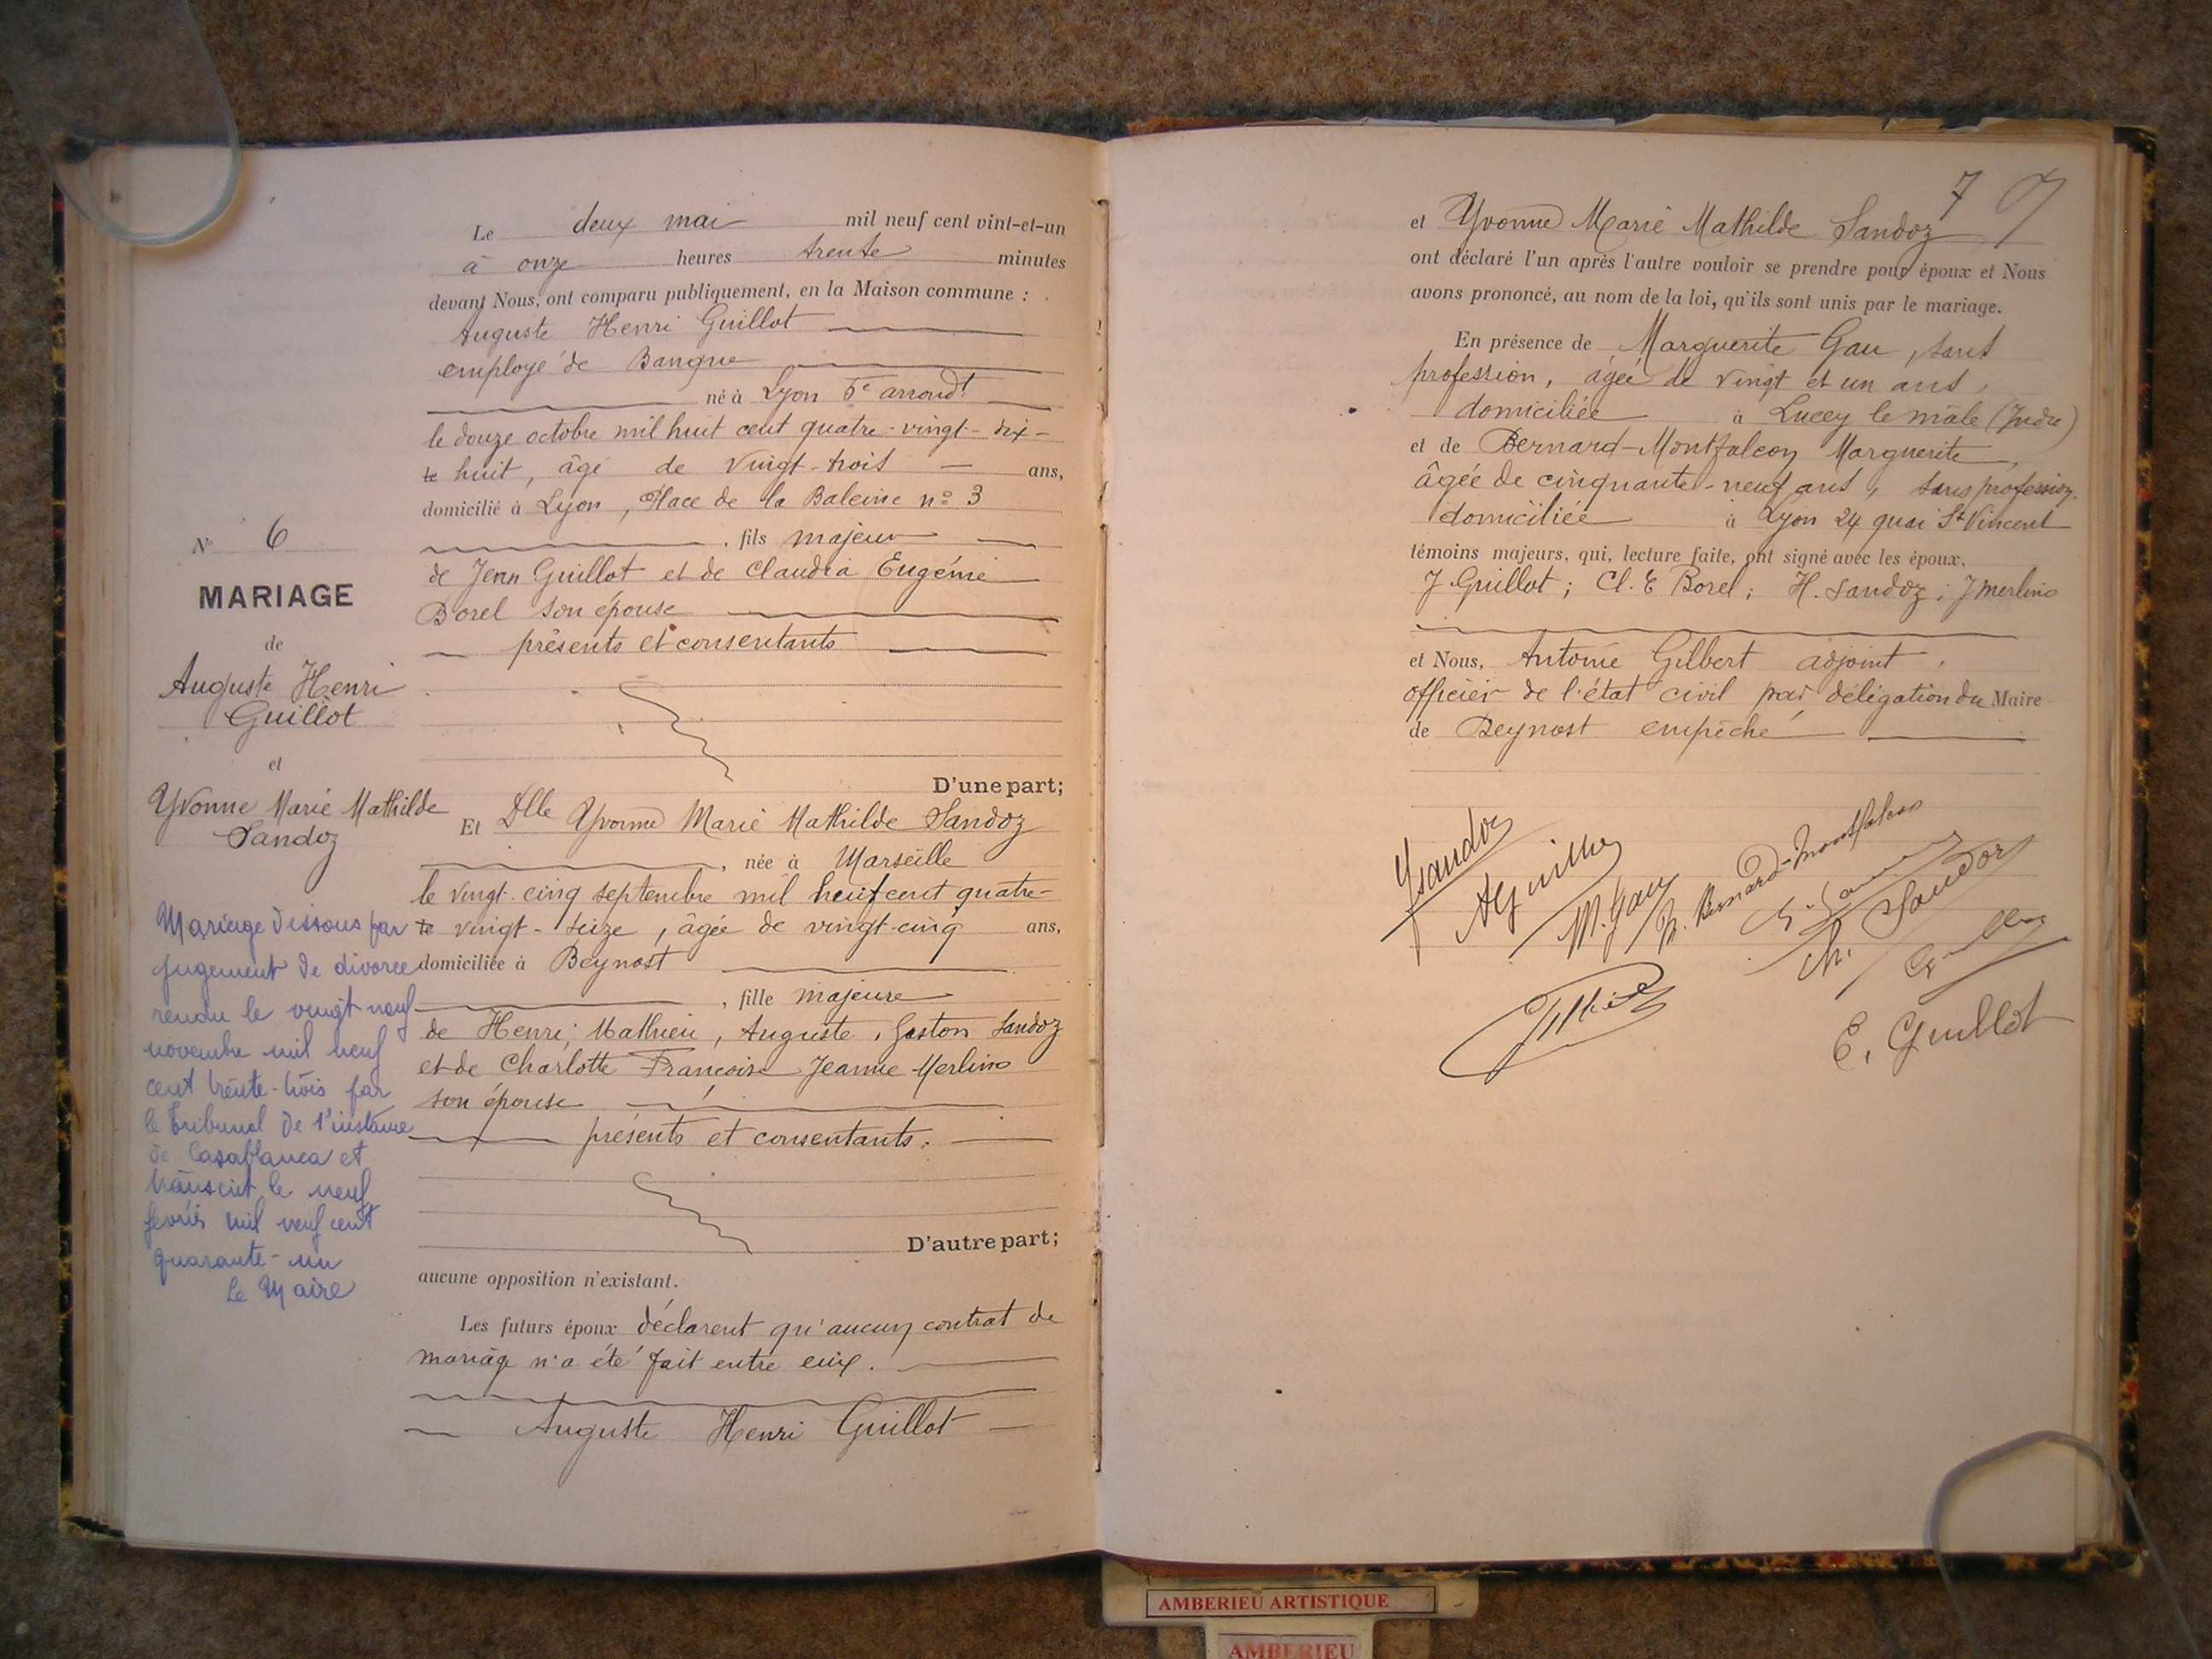 Le deux mai mil neuf cent vint-et-un
à onze heures trente minutes
devant Nous, ont comparu publiquement, en la Maison commune :
Auguste Henri Guillot
employé de Banque
né à Lyon 5e arrondt
le douze octobre mil huit cent quatre-vingt-dix-
le huit, âgé de vingt-trois ans,
domicilié à Lyon, Place de la Baleine no 3
, fils majeur
de Jean Guillot et de Claudia Eugénie
Borel son épouse
présents et consentants
D'une part;
No 6
MARIAGE
de
Auguste Henri
Guillot
et
Yvonne Marie Mathilde
Sandoz
Mariage dissous par
jugement de divorce
rendu le vingt neuf
novembre mil neuf
cent trente-trois par
le tribunal de 1re instance
de Casablanca et
transcrit le neuf
février mil neuf cent
quarante-un
Le Maire
Et Dlle Yvonne Marie Mathilde Sandoz
, née à Marseille
le vingt-cinq septembre mil cent quatre-
vingt-seize, âgée de vingt-cinq ans,
domiciliée à Beynost
, fille majeure
de Henri, Mathieu, Auguste, Gaston Sandoz
et de Charlotte Françoise Jeanne Merlino
son épouse
présents et consentants.
D'autre part;
aucune opposition n'existant.
Les futurs époux déclarent qu'aucun contrat de
mariage n'a été fait entre eux.
Auguste Henri Guillot
7
et Yvonne Marie Mathilde Sandoz
ont déclaré l'un après l'autre vouloir se prendre pour époux et Nous
avons prononcé, au nom de la loi, qu'ils sont unis par le mariage.
En présence de Marguerite Gau, sans
profession, âgée de vingt et un ans,
domiciliée à Lucey le mâle (Indre)
et de Bernard-Montfalcon Marguerite,
âgée de cinquante-neuf ans, sans profession,
domiciliée à Lyon 24 quai St Vincent
témoins majeurs, qui, lecture faite, ont signé avec les époux,
J Guillot; Cl. E Borel; H. Sandoz; J Merlino
et Nous, Antoine Gilbert adjoint,
officier de l'état civil par délégation du Maire
de Beynost empêché
YSandoz
AGuillot
M. Gau
B. Bernard-Montfalcon
Ch. Sandoz
Guillot
Gilbert
E. Guillot
AMBERIEU ARTISTIQUE
AMBERIEU